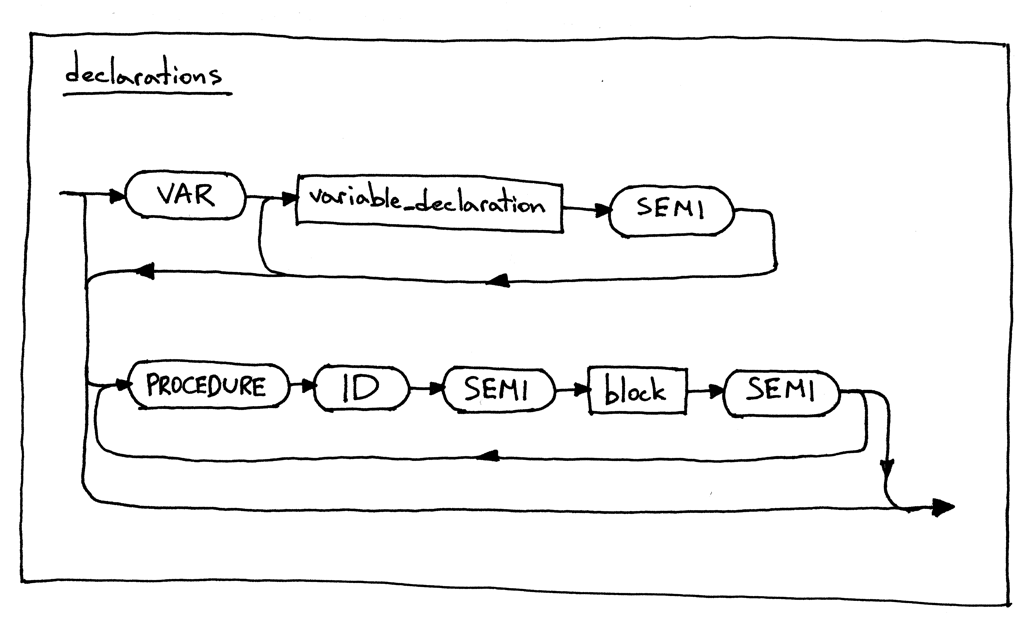 declarations
VAR variable_declaration SEMI
PROCEDURE ID SEMI block SEMI